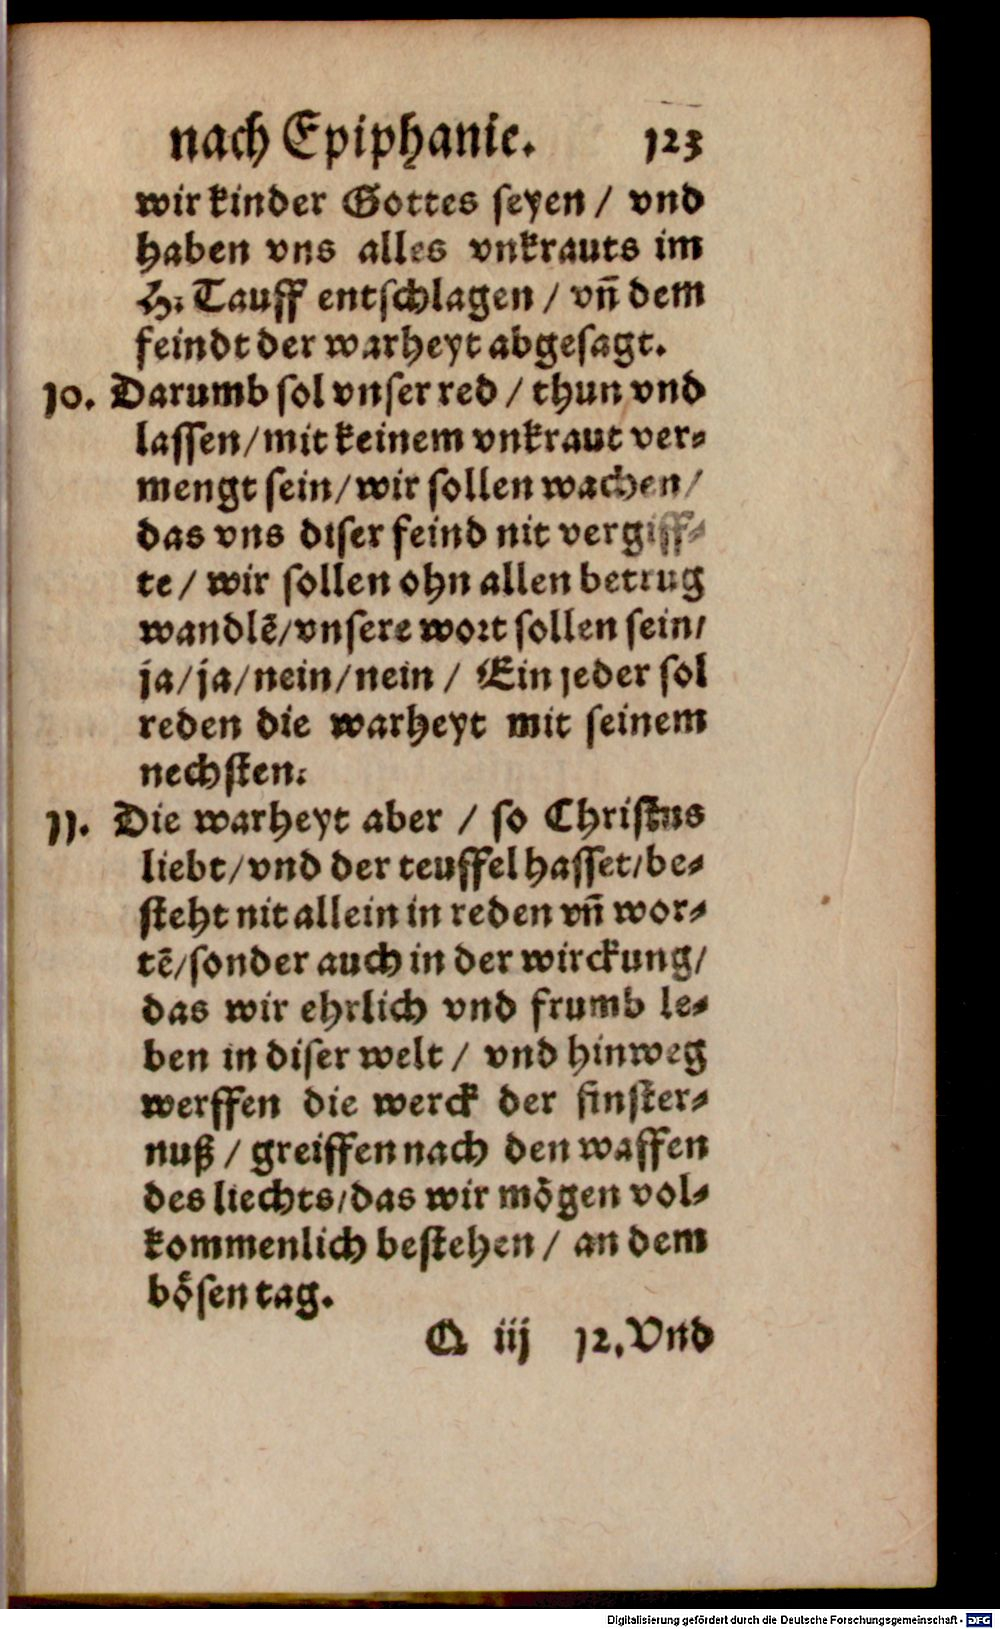 nach Epiphanie. 123
wir kinder Gottes seyen / vnd
haben vns alles vnkrauts im
H. Tauff entschlagen / vn̄ dem
feindt der warheyt abgesagt.
10. Darumb sol vnser red / thun vnd
lassen / mit keinem vnkraut ver⸗
mengt sein / wir sollen wachen /
das vns diser feind nit vergiff⸗
te / wir sollen ohn allen betrug
wandlē / vnsere wort sollen sein /
ja / ja / nein / nein / Ein jeder sol
reden die warheyt mit seinem
nechsten.
11. Die warheyt aber / so Christus
liebt / vnd der teuffel hasset / be⸗
steht nit allein in reden vn̄ wor⸗
tē / sonder auch in der wirckung /
das wir ehrlich vnd frumb le⸗
ben in diser welt / vnd hinweg
werffen die werck der finster⸗
nuß / greiffen nach den waffen
des liechts / das wir mögen vol⸗
kommenlich bestehen / an dem
bösen tag.
Q iij 12. Vnd
Digitalisierung gefördert durch die Deutsche Forschungsgemeinschaft - DFG